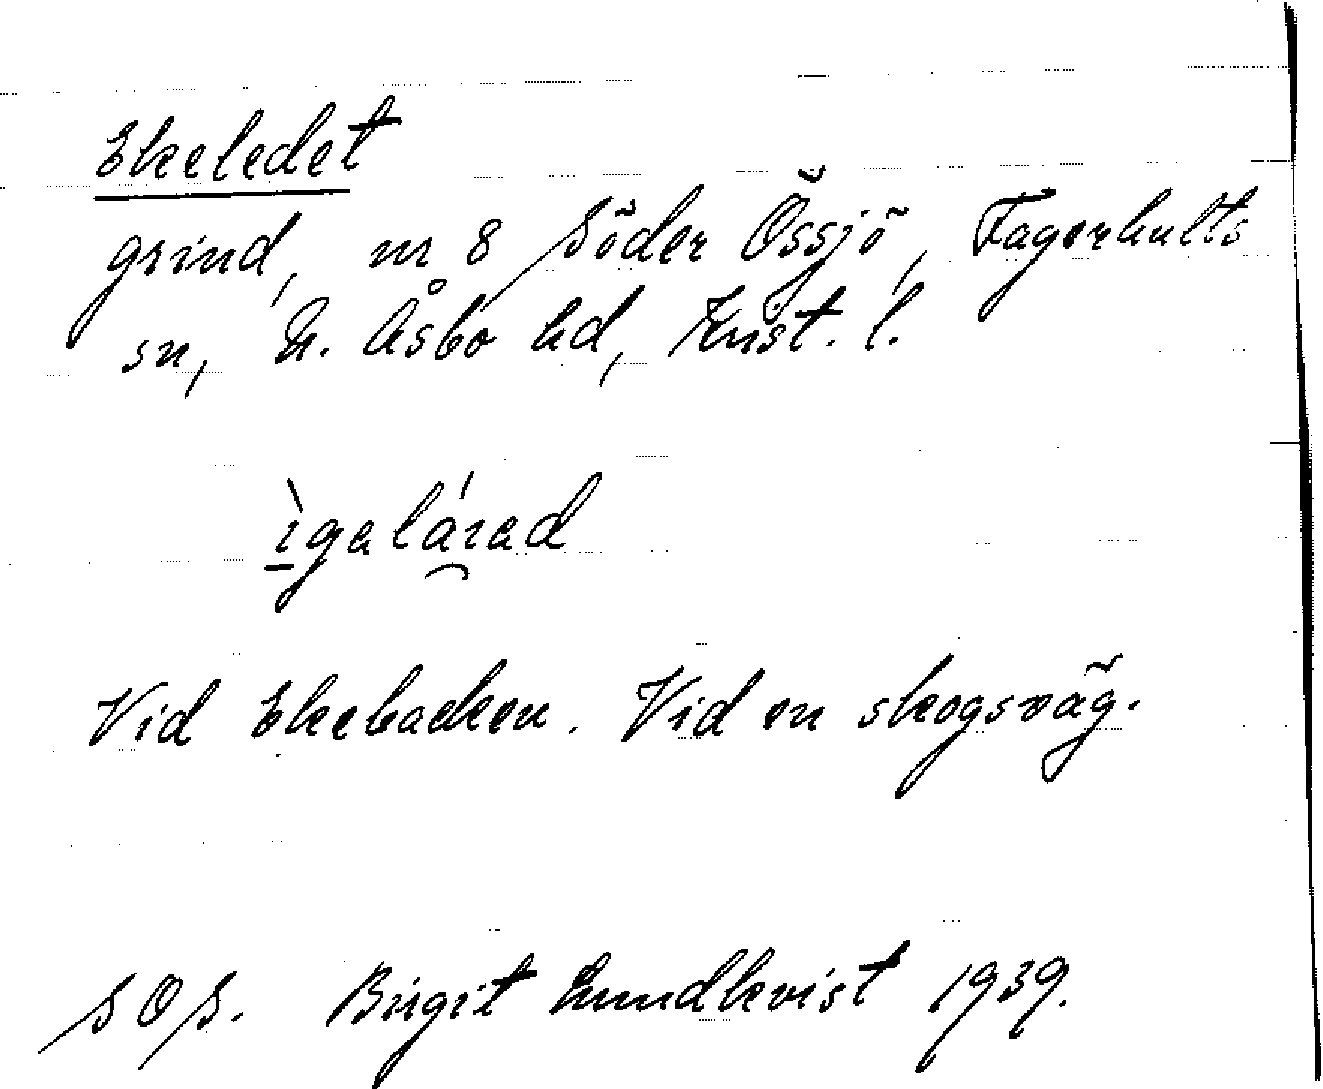 Ekeledet
grind, nr 8 Söder Össjö, Fagerhults
sn, N. Åsbo hd, Krist. l.
ìgalá̯ıad
Vid Ekebacken. Vid en skogsväg.
SOS. Birgit Lundkvist 1939.